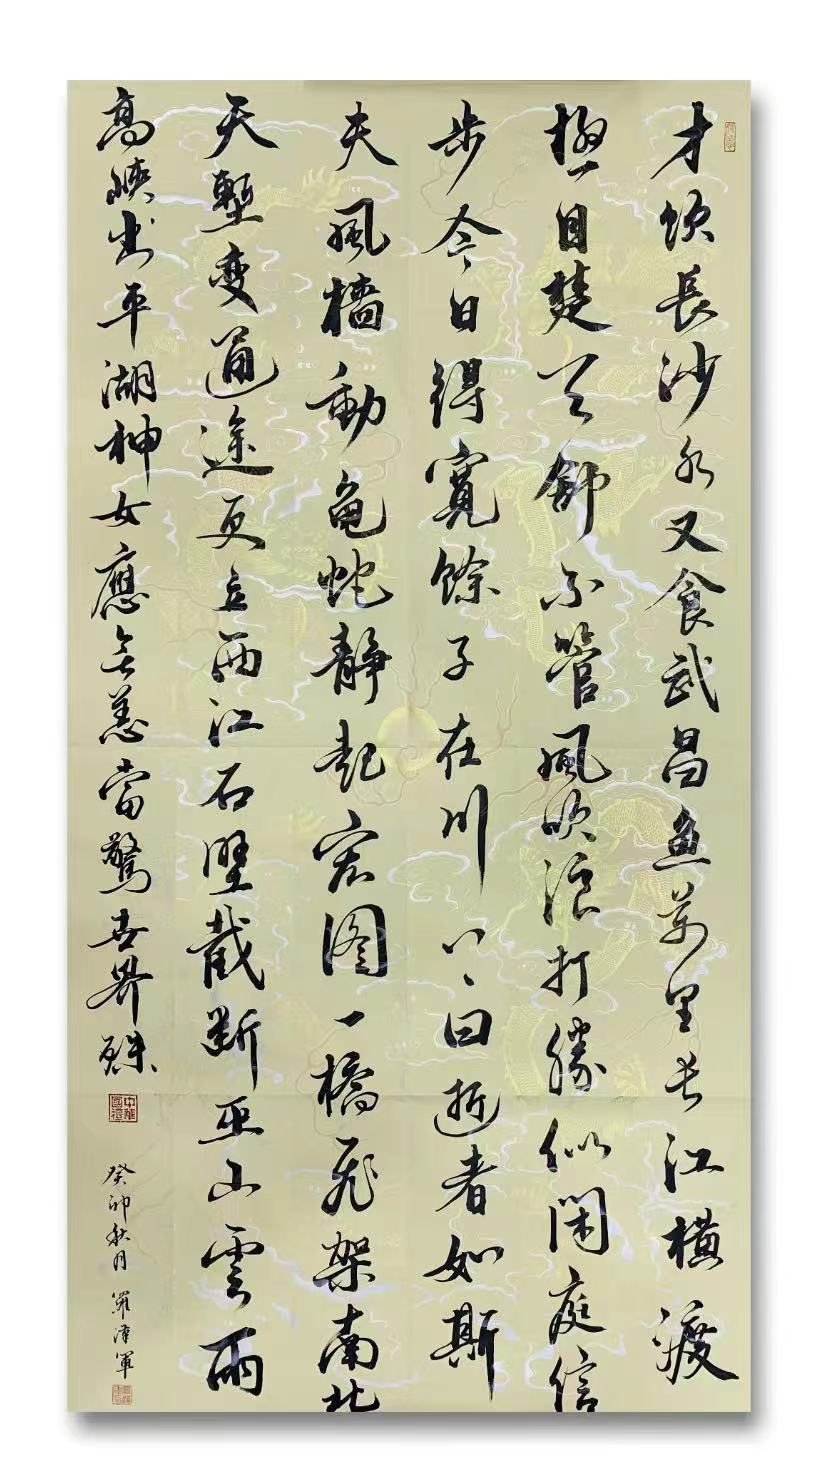 才饮長沙水又食武昌鱼萬里长江橫渡
極目楚天舒不管風吹浪打勝似閑庭信
步今日得寬餘子在川上曰逝者如斯
夫風檣動龟蛇靜起宏图一橋飛架南北
天塹变通途更立西江石壁截断巫山雲雨
高峽出平湖神女應無恙當驚世界殊
中華國禮
癸卯秋月 羅泽軍